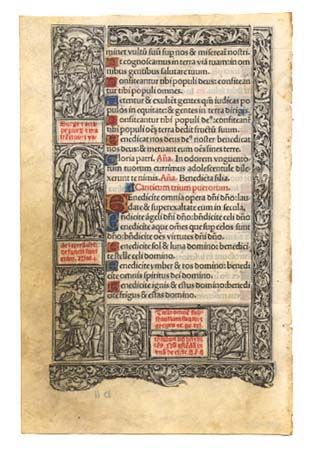 minet vultũ suũ sup nos & misereat nostri
t cognoscamus in terra viã tuam:in om
nibus gentibus salutare tuum.
onfiteantur tibi populi deus:confitean
tur tibi populi omnes.
etentur & exultẽt gentes qm̃ iudicas po
pulos in equitate: & gentes in terra dirigis
onfiteantur tibi populi deus:confiteantur
tibi populi oẽs terra dedit fructũ suum.
enedicat nos deus deus noster benedicat
nos deus: & metuant eum oẽs fines terre.
Gloria patri. Aña. In odorem vnguento
rum tuorum currimus adolescentule dile
xerunt te nimis. Aña. Benedicta filia.
Canticum trium puerorum.
Benedicite omnia opera dñi dño: lau
date & superexaltate eum in secula.
enedicite ãgeli dñi dño: bñdicite celi dño
enedicite aque omnes que sup celos sunt
dño: bñdicite oẽs virtutes dñi dño.
enedicite sol & luna domino: benedici
te stelle celi domino.
enedicite ymber & ros domino: benedi
cite omnis spiritus dei domino.
enedicite ignis & estus domino: benedi
cite frigus & estas domino.